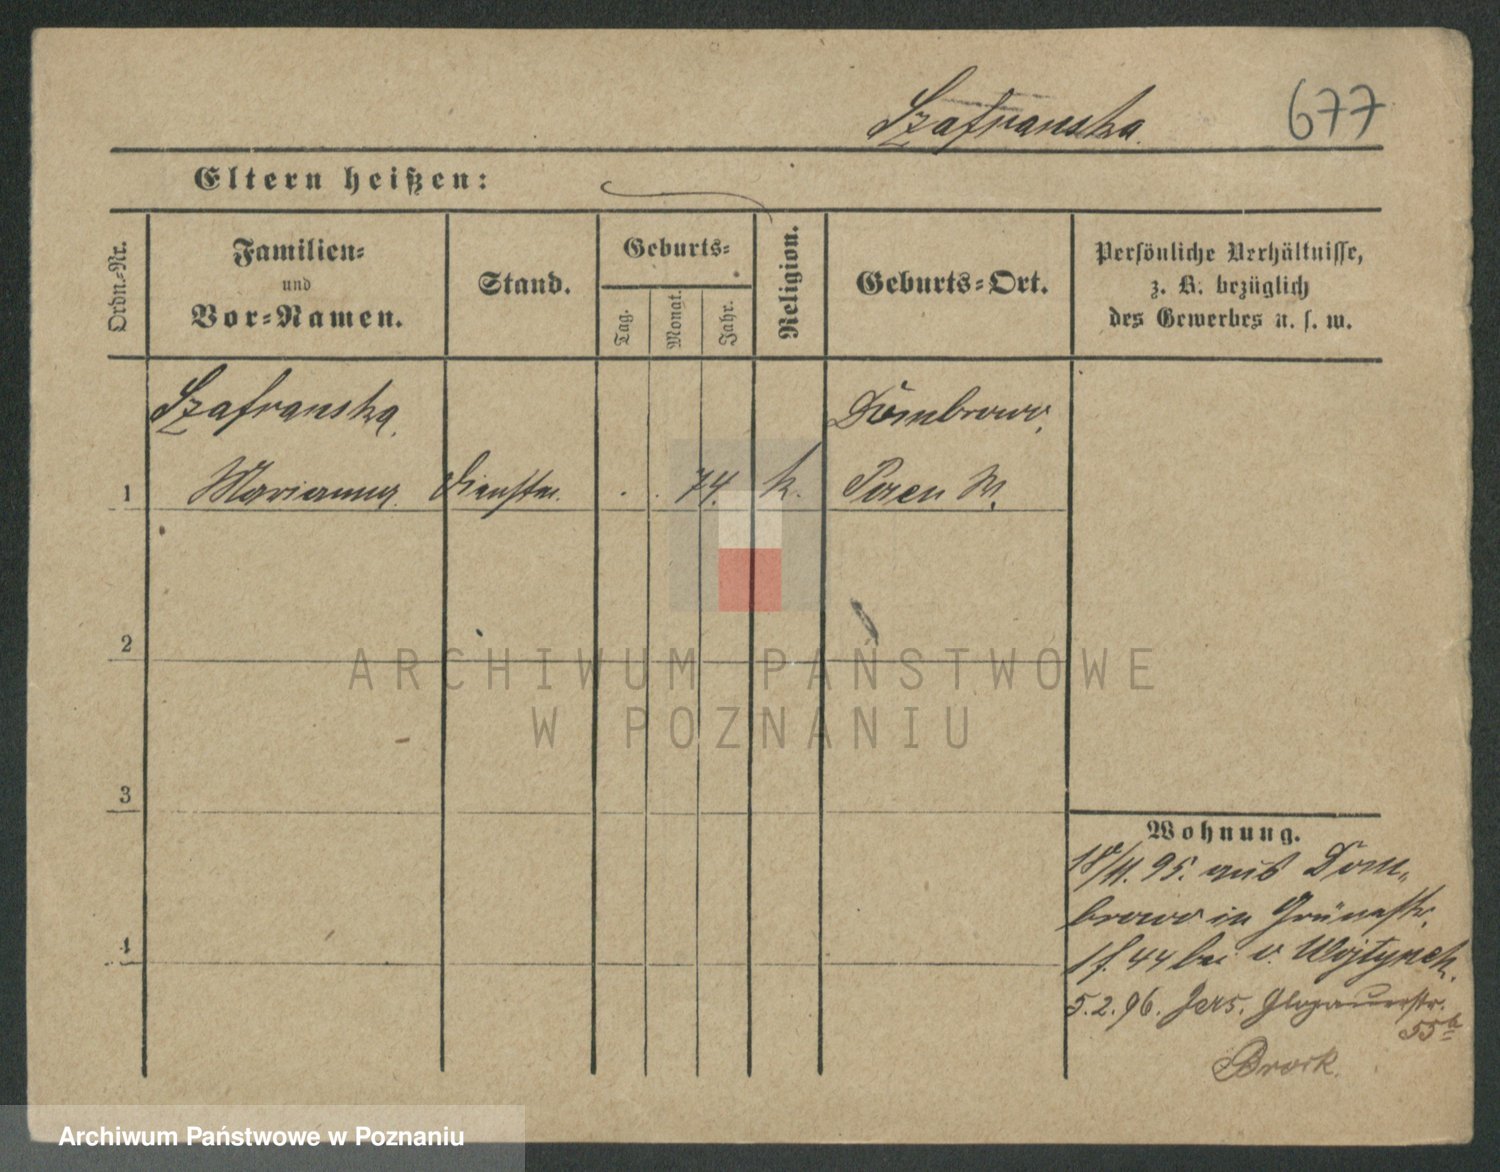 Szafranska.
677
Eltern heißen:
Ordn.-Nr.
Familien-
und
Vor-Namen.
Stand.
Geburts-
Tag.
Monat.
Jahr.
Religion.
Geburts-Ort.
Persönliche Verhältnisse,
z. B. bezüglich
des Gewerbes u. s. w.
Szafranska,
Dombrowo,
1
Marianna
Dienstm.
74.
k.
Posen W.
2
ARCHIWUM PAŃSTWOWE
W POZNANIU
3
Wohnung.
18/11. 95. aus Dom-
browo in Grünestr.
4
44 bei v.
5.2.96. Jers. Glogauerstr.
55
Archiwum Państwowe w Poznaniu